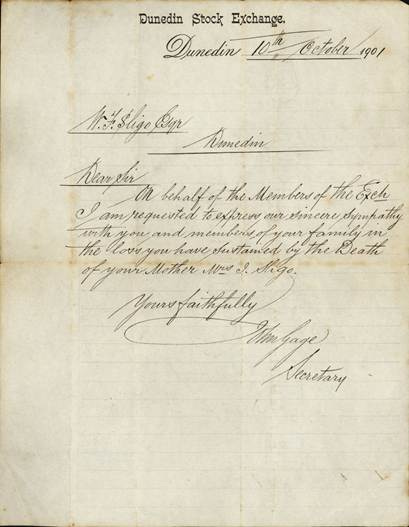 Dunedin Stock Exchange.
Dunedin 10th October 1901
W. F. Sligo Esqr
Dunedin
Dear Sir
On behalf of the Members of the Exch
I am requested to express our sincere sympathy
with you and members of your family in
the loss you have sustained by the Death
of your Mother Mrs J. Sligo.
Yours faithfully
John Gage
Secretary